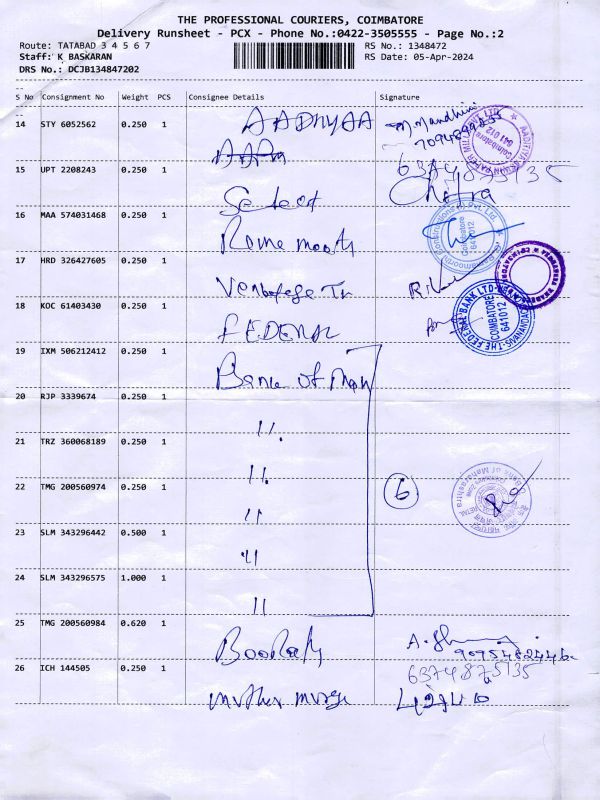 THE PROFESSIONAL COURIERS, COIMBATORE
Delivery Runsheet - PCX - Phone No.:0422-3505555 - Page No.:2
Route: TATABAD 3 4 5 6 7
RS No.: 1348472
Staff: K BASKARAN
RS Date: 05-Apr-2024
DRS No.: DCJB134847202
S No Consignment No Weight PCS Consignee Details Signature
14 STY 6052562 0.250 1 AADHYAA
7094899255
15 UPT 2208243 0.250 1 Select
6374875135
Chitra
16 MAA 574031468 0.250 1
17 HRD 326427605 0.250 1
18 KOC 61403430 0.250 1 FEDERAL
THE FEDERAL BANK LTD
COIMBATORE
641012
19 IXM 506212412 0.250 1 Bank of Mah
20 RJP 3339674 0.250 1 11.
21 TRZ 360068189 0.250 1 11.
22 TMG 200560974 0.250 1 11
6
Bank of Maharashtra
23 SLM 343296442 0.500 1 11
24 SLM 343296575 1.000 1 11
25 TMG 200560984 0.620 1
9095482446
26 ICH 144505 0.250 1
6374875135